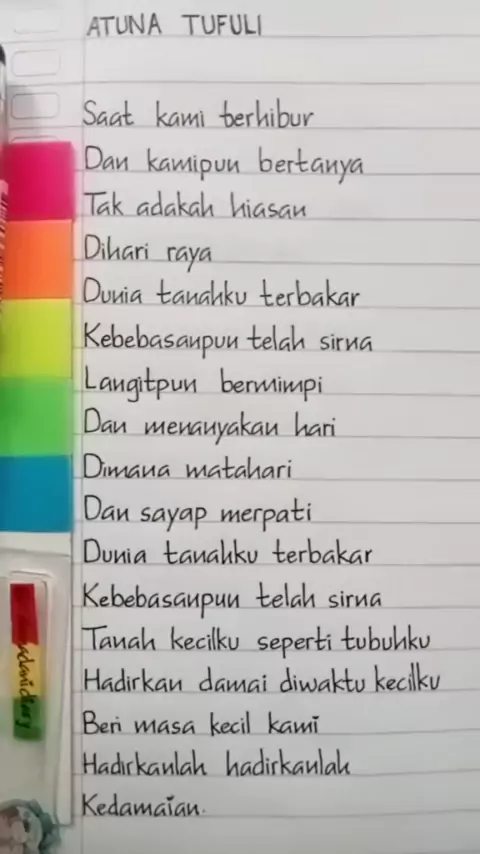 ATUNA TUFULI
Saat kami terhibur
Dan kamipun bertanya
Tak adakah hiasan
Dihari raya
Dunia tanahku terbakar
Kebebasanpun telah sirna
Langitpun bermimpi
Dan menanyakan hari
Dimana matahari
Dan sayap merpati
Dunia tanahku terbakar
Kebebasanpun telah sirna
Tanah kecilku seperti tubuhku
Hadirkan damai diwaktu kecilku
Beri masa kecil kami
Hadirkanlah hadirkanlah
Kedamaian.